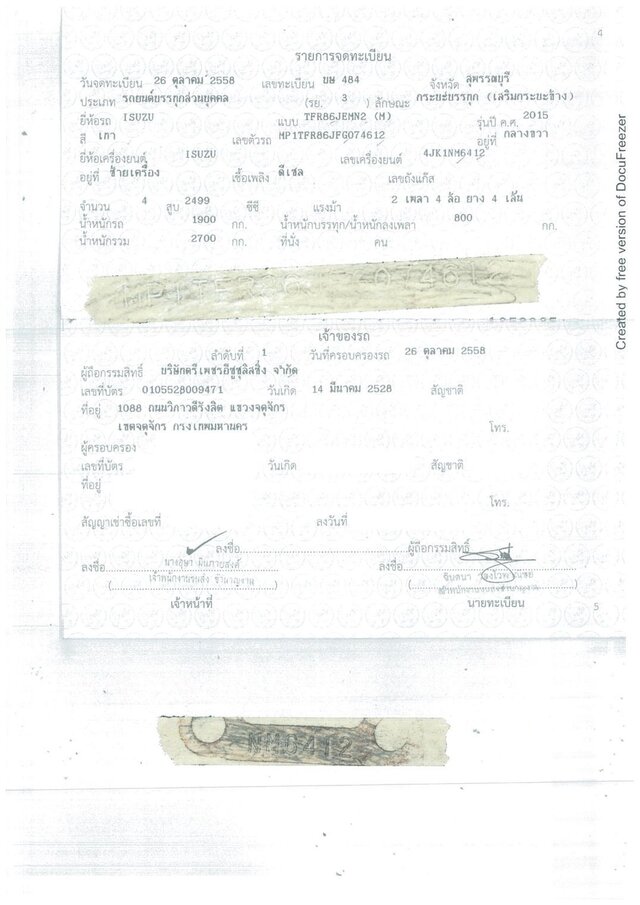 4
รายการจดทะเบียน
วันจดทะเบียน 26 ตุลาคม 2558 เลขทะเบียน ยษ 484 จังหวัด สุพรรณบุรี
ประเภท รถยนต์บรรทุกส่วนบุคคล (รย. 3 ) ลักษณะ กระบะบรรทุก (เสริมกระบะข้าง)
ยี่ห้อรถ ISUZU แบบ TFR86JEMN2 (M) รุ่นปี ค.ศ. 2015
สี เทา เลขตัวรถ MP1TFR86JFG074612 อยู่ที่ กลางขวา
ยี่ห้อเครื่องยนต์ ISUZU เลขเครื่องยนต์ 4JK1NM6412
อยู่ที่ ซ้ายเครื่อง เชื้อเพลิง ดีเซล เลขถังแก๊ส
จำนวน 4 สูบ 2499 ซีซี แรงม้า 2 เพลา 4 ล้อ ยาง 4 เส้น
น้ำหนักรถ 1900 กก. น้ำหนักบรรทุก/น้ำหนักลงเพลา 800 กก.
น้ำหนักรวม 2700 กก. ที่นั่ง คน
เจ้าของรถ
ลำดับที่ 1 วันที่ครอบครองรถ 26 ตุลาคม 2558
ผู้ถือกรรมสิทธิ์ บริษัทตรีเพชรอีซูซุลิสซิ่ง จำกัด
เลขที่บัตร 0105528009471 วันเกิด 14 มีนาคม 2528 สัญชาติ
ที่อยู่ 1088 ถนนวิภาวดีรังสิต แขวงจตุจักร
เขตจตุจักร กรุงเทพมหานคร โทร.
ผู้ครอบครอง
เลขที่บัตร วันเกิด สัญชาติ
ที่อยู่
โทร.
สัญญาเช่าซื้อเลขที่ ลงวันที่
ลงชื่อ ผู้ถือกรรมสิทธิ์
ลงชื่อ ลงชื่อ
เจ้าพนักงานขนส่ง ชำนาญงาน
เจ้าหน้าที่ นายทะเบียน
5
Created by free version of DocuFreezer